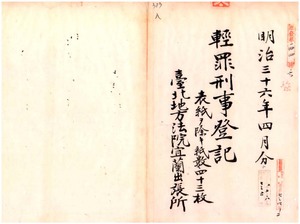 明治三十六年四月分
輕罪刑事登記
表紙ヲ除ク紙數四十三枚
臺北地方法院宜蘭出張所